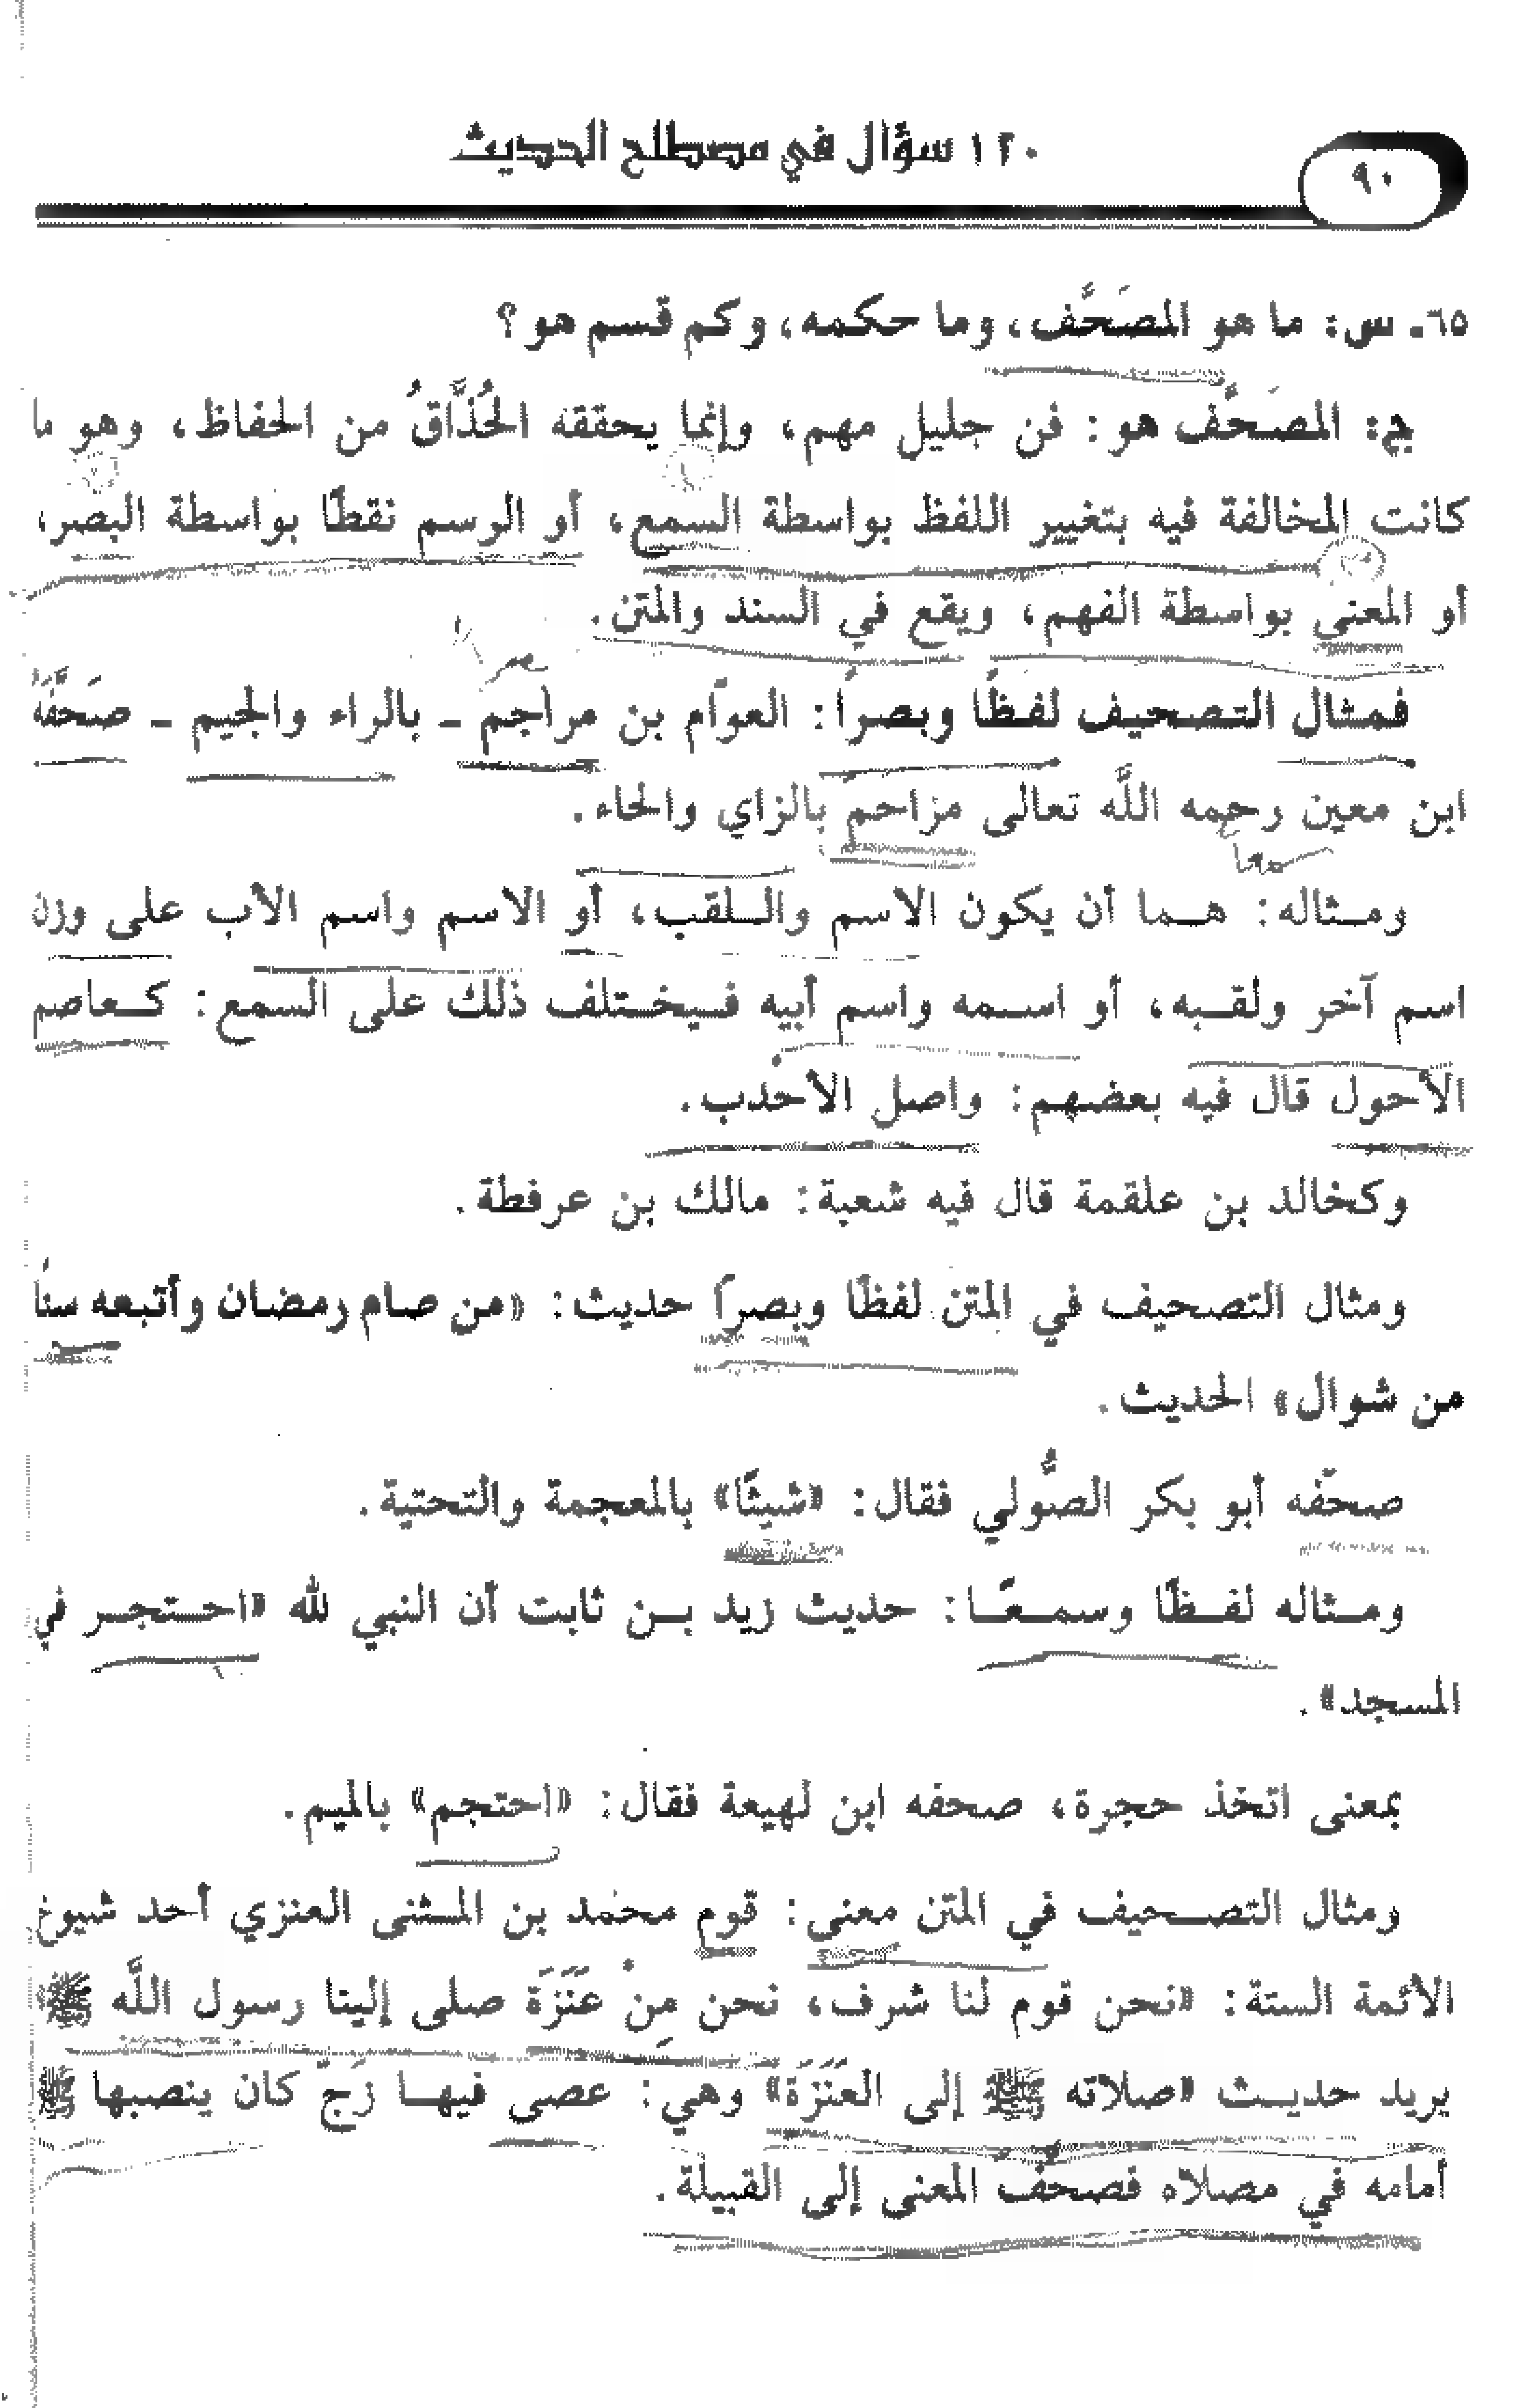 ١٢٠ سؤال في مصطلح الحديث
٩٠
٦٥ـ س: ما هو المصَحَّف، وما حكمه، وكم قسم هو؟
ج: المصَحَّف هو: فن جليل مهم، وإنما يحققه الحُذَّاقُ من الحفاظ، وهو ما
كانت المخالفة فيه بتغيير اللفظ بواسطة السمع، أو الرسم نقطًا بواسطة البصر،
أو المعنى بواسطة الفهم، ويقع في السند والمتن.
فمثال التصحيف لفظًا وبصرًا: العوّام بن مراجم ـ بالراء والجيم ـ صَحَّفَهُ
ابن معين رحمه اللَّه تعالى مزاحم بالزاي والحاء.
سمعا
ومـثاله: هـما أن يكون الاسم والـلقب، أو الاسم واسم الأب على وزن
اسم آخر ولقـبه، أو اسـمه واسم أبيه فـيخـتلف ذلك على السمع: كـعاصم
الأحول قال فيه بعضهم: واصل الأحْدب.
وكخالد بن علقمة قال فيه شعبة: مالك بن عرفطة.
ومثال التصحيف في المتن لفظًا وبصرًا حديث: «من صام رمضان وأتبعه ستًا
من شوال» الحديث.
صحّفه أبو بكر الصُّولي فقال: «شيئًا» بالمعجمة والتحتية.
ومـثاله لفـظًا وسمـعًـا: حديث زيد بـن ثابت أن النبي لله «احـتجـر في
المسجد».
بمعنى اتخذ حجرة، صحفه ابن لهيعة فقال: «احتجم» بالميم.
ومثال التصـحيف في المتن معنى: قوم محمد بن المثنى العنزي أحد شيوخ
الأئمة الستة: «نحن قوم لنا شرف، نحن مِنْ عَنَزَة صلى إلينا رسول اللَّه ﷺ»
يريد حديـث «صلاته ﷺ إلى العَنَزَة» وهي: عصى فيهـا زَجّ كان ينصبها ﷺ
أمامه في مصلاه فصحَّف المعنى إلى القبيلة.